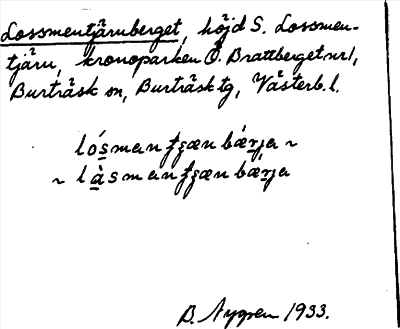 Lossmentjärnberget, höjd S. Lossmen-
tjärn, kronoparken Ö. Brattberget nr 1,
Burträsk sn, Burträsk tg, Västerb. l.
lósmanʈʂæn bǽrja ~
~ làsmanʈʂæn bǽrja
B. Nygren 1933.